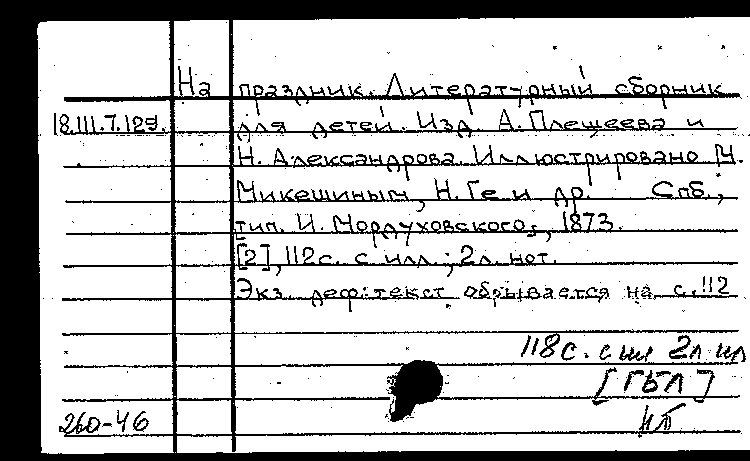 На праздник. Литературный сборник
18.III.7.129. для детей. Изд. А. Плещеева и
Н. Александрова. Иллюстрировано М.
Микешиным, Н. Ге и др. Спб.,
тип. И. Мордуховского, 1873.
[2], 112с. с илл.; 2л. нот.
Экз. деф: текст обрывается на с. 112
118с. с ил 2л ил
[ГБЛ]
260-46 НБ